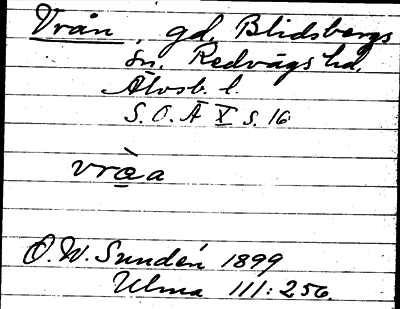 Vrån, gd, Blidsbergs
sn. Redvägs hd.
Älvsb. l.
S. O. Ä X s. 16
vrå̀a
O. W. Sundén 1899
Ulma III: 256.